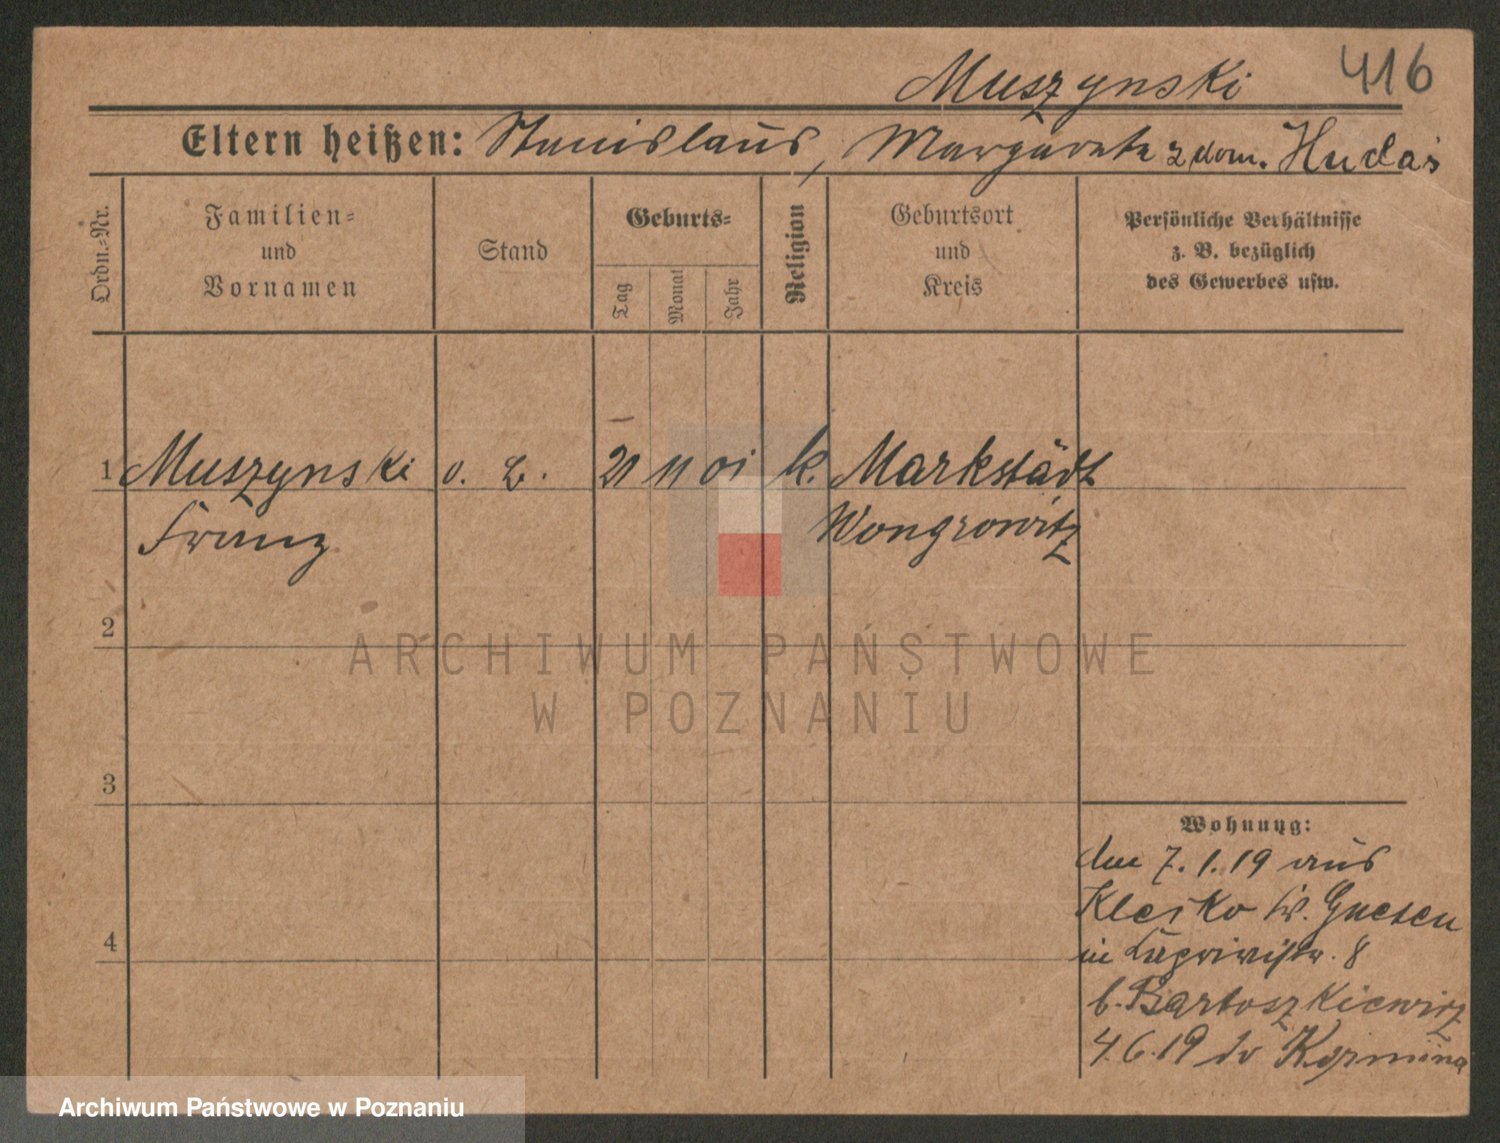 416
Muszynski
Eltern heißen: Stanislaus, Margareta z dom. Hudaś
Ordn.-Nr.
Familien=
und
Vornamen
Stand
Geburts=
Tag
Monat
Jahr
Religion
Geburtsort
und
Kreis
Persönliche Verhältnisse
z. B. bezüglich
des Gewerbes usw.
1 Muszynski v. B. 21 11 01 k. Markstädt
Franz Wongrowitz
2
ARCHIWUM PAŃSTWOWE
W POZNANIU
3
Wohnung:
den 7.1.19 aus
Klecko Kr. Gnesen
4
in 8
b. Bartoszkiewicz
4.6.19 do
Archiwum Państwowe w Poznaniu